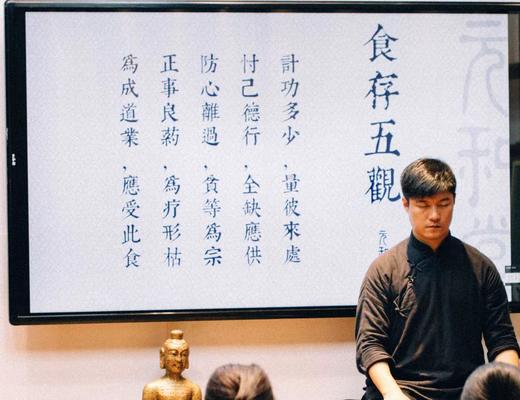 食存五觀
計功多少，量彼來處
忖己德行，全缺應供
防心離過，貪等為宗
正事良藥，為疗形枯
為成道業，應受此食
元和